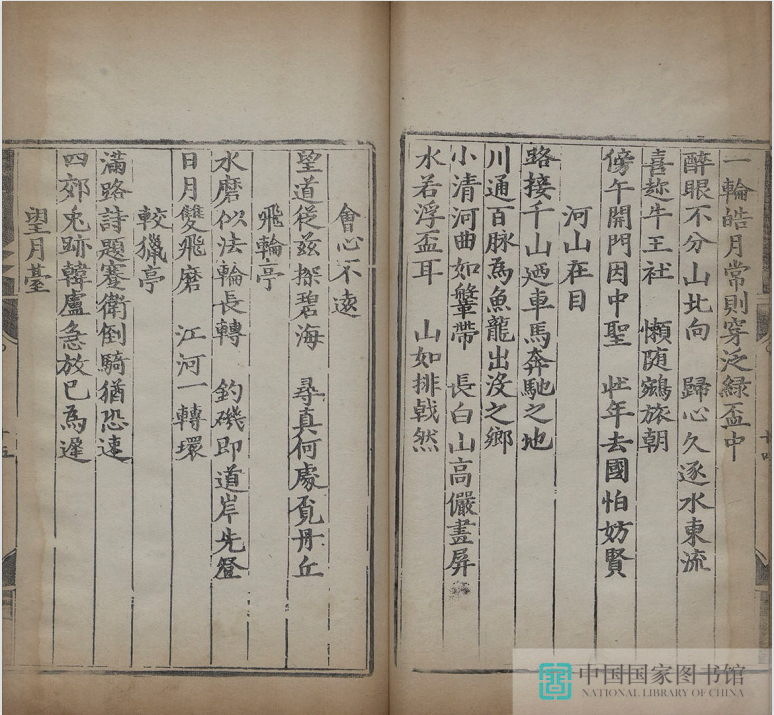 一輪皓月常則穿泛綠盃中
醉眼不分山北向　歸心久逐水東流
喜趂牛王社　懶随鵷旅朝
傍午開門因中聖　壮年去國怕妨賢
河山在目
路接千山廼車馬奔馳之地
川通百脉為魚龍出沒之鄉
小清河曲如鞶帶　長白山高儼畫屏
水若浮盃耳　山如排戟然
會心不遠
望道從兹探碧海　尋真何處覔丹丘
飛輪亭
水磨似法輪長轉　釣磯即道岸先登
日月雙飛磨　江河一轉環
較獵亭
滿路詩題蹇衛倒騎猶恐速
四郊兎跡韓盧急放已為遲
望月臺
中国国家图书馆
NATIONAL LIBRARY OF CHINA